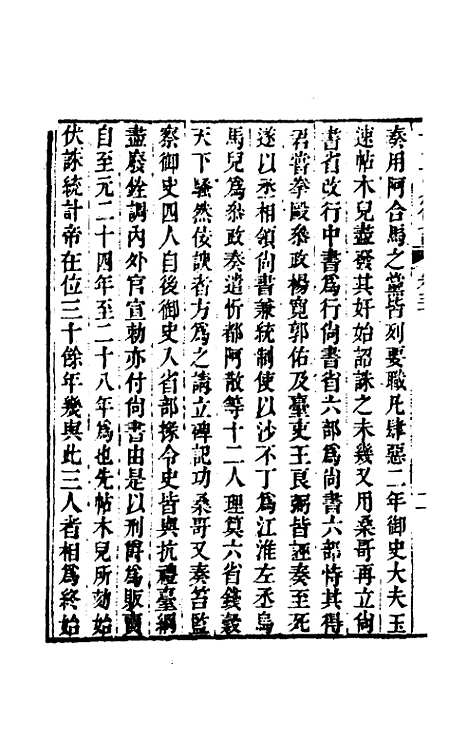 奏用阿合馬之黨皆列要職凡肆惡二年御史大夫玉
速帖木兒盡發其奸始詔誅之未幾又用桑哥再立尚
書省改行中書爲行尚書省六部爲尚書六部恃其得
君嘗拳毆叅政楊寬郭佑及臺吏王良弼皆誣奏至死
遂以丞相領尚書兼統制使以沙不丁爲江淮左丞烏
馬兒爲叅政奏遣忻都阿散等十二人理算六省錢穀
天下騷然佞諛者方爲之請立碑記功桑哥又奏笞監
察御史四人自後御史入省部掾令史皆與抗禮臺綱
盡廢銓調內外官宣勅亦付尚書由是以刑爵爲販賣
自至元二十四年至二十八年爲也先帖木兒所劾始
伏誅統計帝在位三十餘年幾與此三人者相爲終始